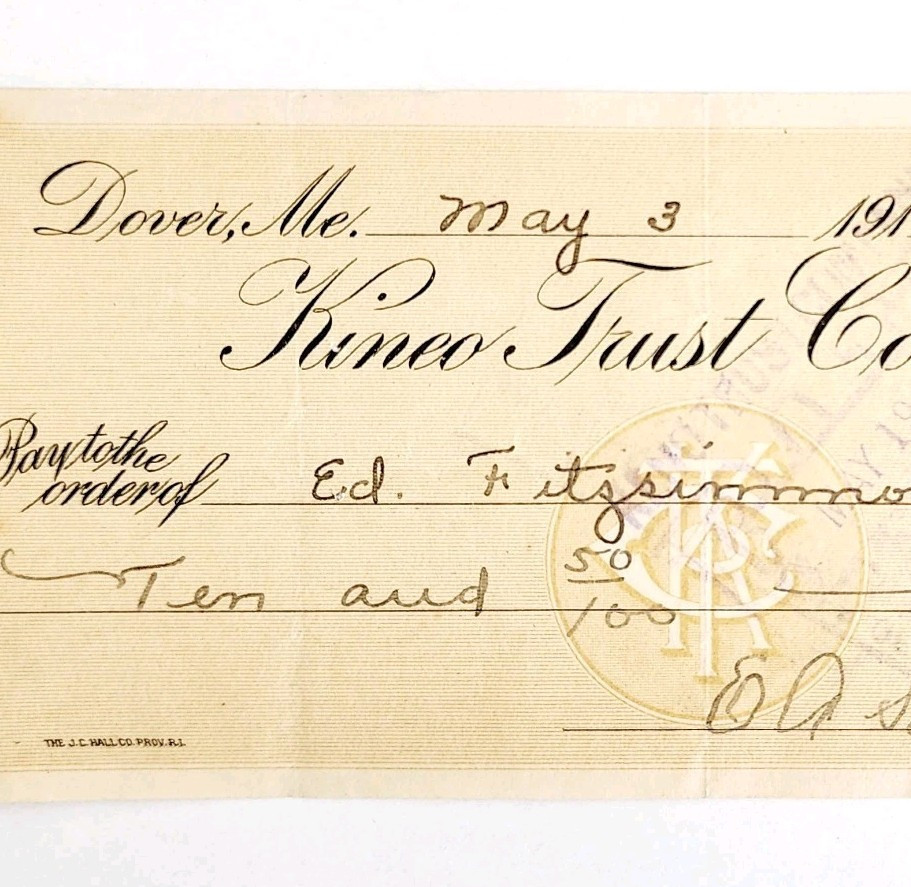 Dover, Me. May 3 191
Kineo Trust Co
Pay to the
order of Ed. Fitzsimmo
Ten and 50/100
E A S
THE J.C. HALL CO. PROV. R.I.